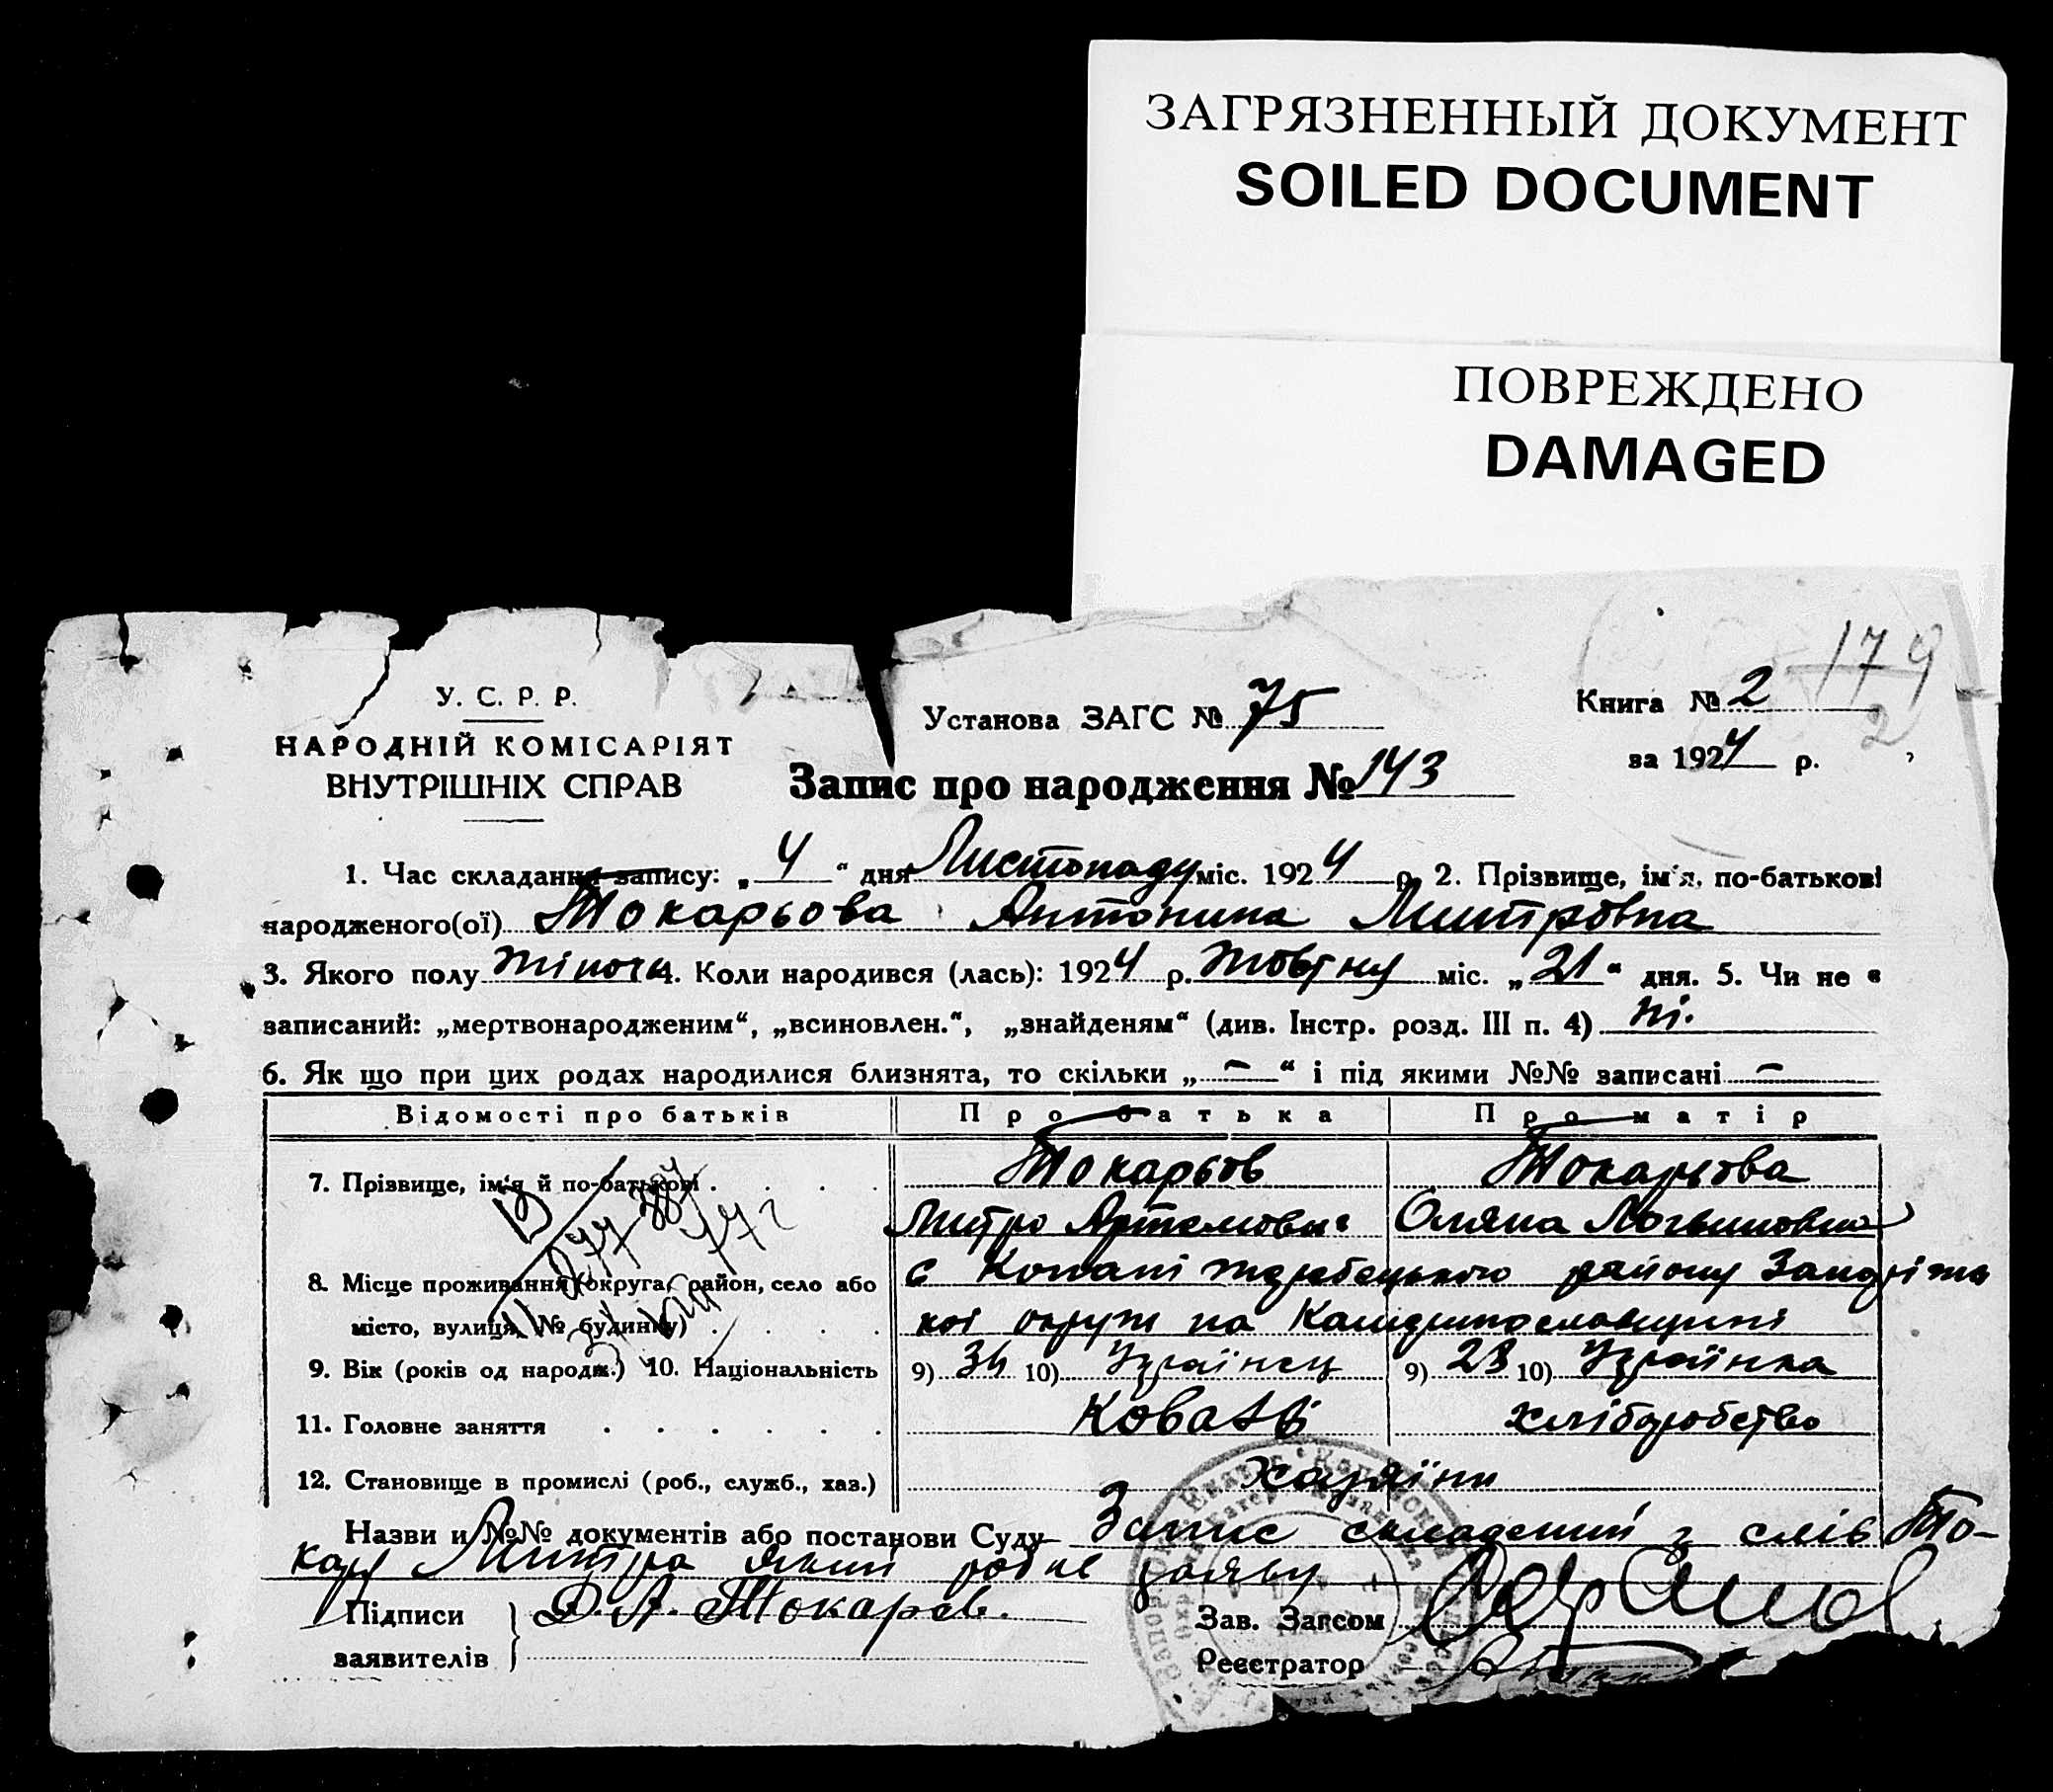 ЗАГРЯЗНЕННЫЙ ДОКУМЕНТ
SOILED DOCUMENT
ПОВРЕЖДЕНО
DAMAGED
174
2
У. С. Р. Р.
НАРОДНІЙ КОМІСАРІЯТ
ВНУТРІШНІХ СПРАВ
Установа ЗАГС № 75
Книга № 2
за 1924 р.
Запис про народження № 143
1. Час складання запису: „ 4 “ дня Листопаду міс. 1924 р. 2. Прізвище, ім'я, по-батькові
народженого(ої) Токарьова Антонина Митровна
3. Якого полу жіноч. 4. Коли народився (лась): 1924 р. жовтну міс. „ 21 “ дня. 5. Чи не є
записаний: „мертвонародженим“, „всиновлен.“, „знайденям“ (див. Інстр. розд. III п. 4) ні.
6. Як що при цих родах народилися близнята, то скільки „ – “ і під якими №№ записані –
Відомості про батьків Про батька Про матір
7. Прізвище, ім'я й по-батькові Токарьов Токарьова
Митро Артемович Оляна Логвиновна
8. Місце проживання (округа, район, село або с Копані жеребецького району Запоріж
місто, вулиця, № будинку) кої округи на Катеринославщині
9. Вік (років од народж.) 10. Національність 9) 34 10) Українец 9) 28 10) Українка
11. Головне заняття Коваль хліборобство
12. Становище в промислі (роб., служб., хаз.) хазяїни
Назви и №№ документів або постанови Суду Запис складений з слів То-
карь Митра який робив заяву
Підписи заявителів Д. А. Токарев.
Зав. Загсом
Реєстратор